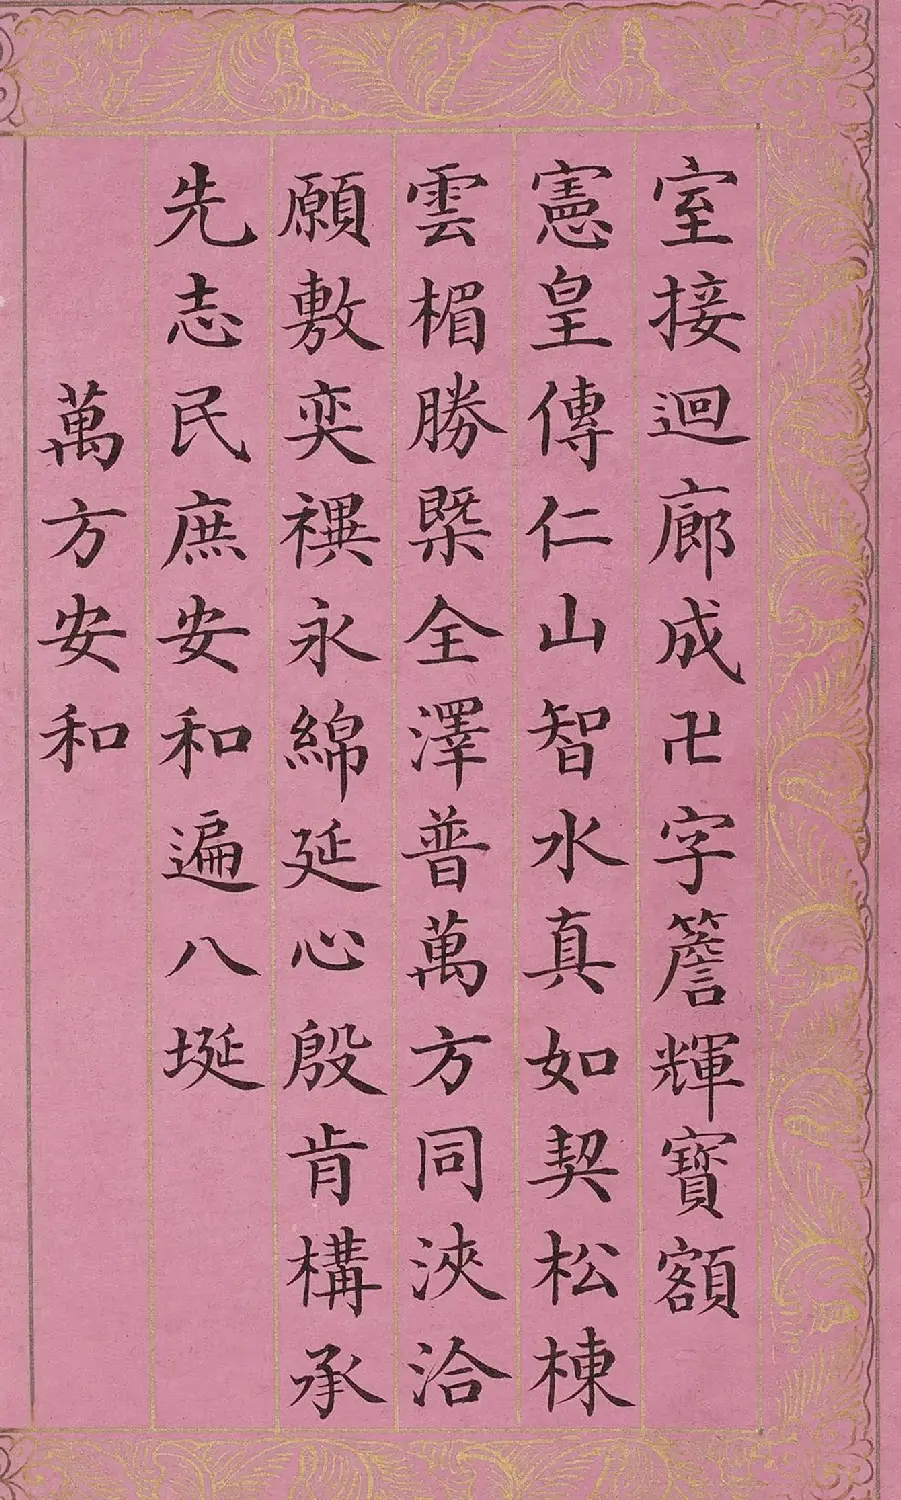 室接迴廊成卍字簷輝寳額
憲皇傳仁山智水真如契松棟
雲楣勝槩全澤普萬方同浹洽
願敷奕禩永綿延心殷肯構承
先志民庶安和遍八埏
萬方安和